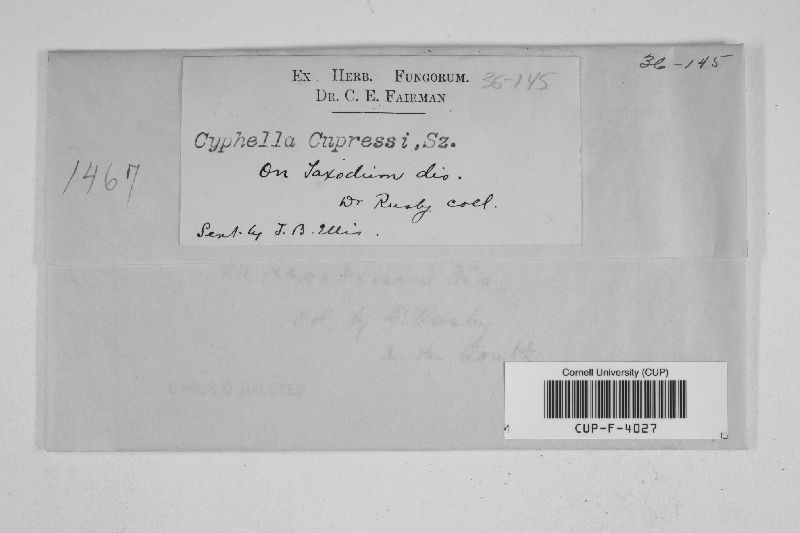 36-145
Ex. Herb. Fungorum. 36-145
Dr. C. E. Fairman
Cyphella Cupressi, Sz.
On Taxodium dis.
Dr Rusby coll.
Sent by J. B. Ellis.
1467
Taxodium dis.
Col. by Dr Rusby
In the South
Cornell University (CUP)
CUP-F-4027